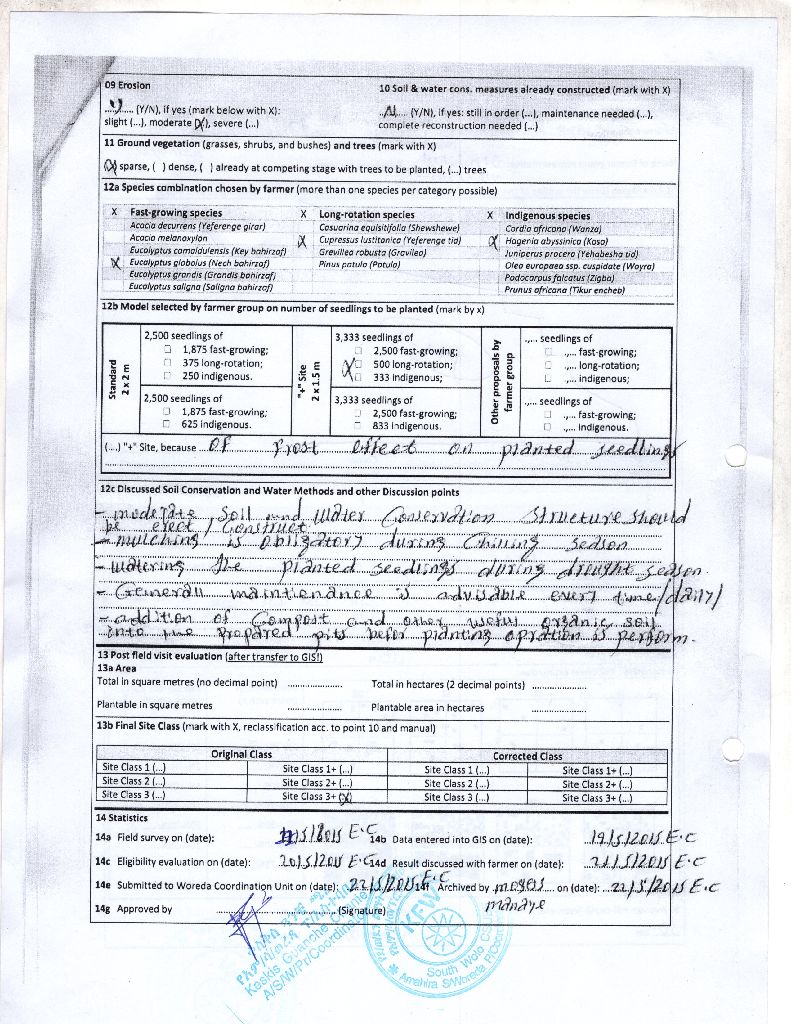 09 Erosion
10 Soil & water cons. measures already constructed (mark with X)
Y (Y/N), if yes (mark below with X):
slight (...), moderate (X), severe (...)
N (Y/N), if yes: still in order (...), maintenance needed (...),
complete reconstruction needed (...)
11 Ground vegetation (grasses, shrubs, and bushes) and trees (mark with X)
(X) sparse, ( ) dense, ( ) already at competing stage with trees to be planted, (...) trees
12a Species combination chosen by farmer (more than one species per category possible)
X Fast-growing species
Acacia decurrens (Yeferenge girar)
Acacia melanoxylon
Eucalyptus camaldulensis (Key bahirzaf)
X Eucalyptus globolus (Nech bahirzaf)
Eucalyptus grandis (Grandis bahirzaf)
Eucalyptus saligna (Saligna bahirzaf)
X Long-rotation species
Casuarina equisitifolia (Shewshewe)
X Cupressus lustitanica (Yeferenge tid)
Grevillea robusta (Gravilea)
Pinus patula (Patula)
X Indigenous species
Cordia africana (Wanza)
X Hagenia abyssinica (Koso)
Juniperus procera (Yehabesha tid)
Oleo europaea ssp. cuspidate (Woyra)
Podocarpus falcatus (Zigba)
Prunus africana (Tikur encheb)
12b Model selected by farmer group on number of seedlings to be planted (mark by x)
Standard
2 x 2 m
2,500 seedlings of
1,875 fast-growing;
375 long-rotation;
250 indigenous.
2,500 seedlings of
1,875 fast-growing;
625 indigenous.
"+" Site
2 x 1.5 m
3,333 seedlings of
2,500 fast-growing;
X 500 long-rotation;
333 indigenous;
3,333 seedlings of
2,500 fast-growing;
833 indigenous.
Other proposals by
farmer group
.,... seedlings of
.,... fast-growing;
.,... long-rotation;
.,... indigenous;
.,... seedlings of
.,... fast-growing;
.,... indigenous.
(...) "+" Site, because of frost effect on planted seedlings
12c Discussed Soil Conservation and Water Methods and other Discussion points
- moderate Soil and Water Conservation Structure should
be erect / Construct
- mulching is obligatory during Chilling season
- watering the planted seedlings during drought season.
- Generall maintienance is advisable every time/daily/
- addition of Compost and other useful organic soil
into the prepared pits befor planting opration is perform.
13 Post field visit evaluation (after transfer to GIS!)
13a Area
Total in square metres (no decimal point) ..................
Total in hectares (2 decimal points) ..................
Plantable in square metres ..................
Plantable area in hectares ..................
13b Final Site Class (mark with X, reclassification acc. to point 10 and manual)
Original Class Corrected Class
Site Class 1 (...) Site Class 1+ (...) Site Class 1 (...) Site Class 1+ (...)
Site Class 2 (...) Site Class 2+ (...) Site Class 2 (...) Site Class 2+ (...)
Site Class 3 (...) Site Class 3+ (X) Site Class 3 (...) Site Class 3+ (...)
14 Statistics
14a Field survey on (date): /5/2015 E.C
14b Data entered into GIS on (date): 19/5/2015 E.C
14c Eligibility evaluation on (date): 20/5/2015 E.C
14d Result discussed with farmer on (date): 21/5/2015 E.C
14e Submitted to Woreda Coordination Unit on (date): 22/5/2015 E.C
14f Archived by on (date): 22/5/2015 E.C
manaye
14g Approved by .................. (Signature)
KFW
South Wolo